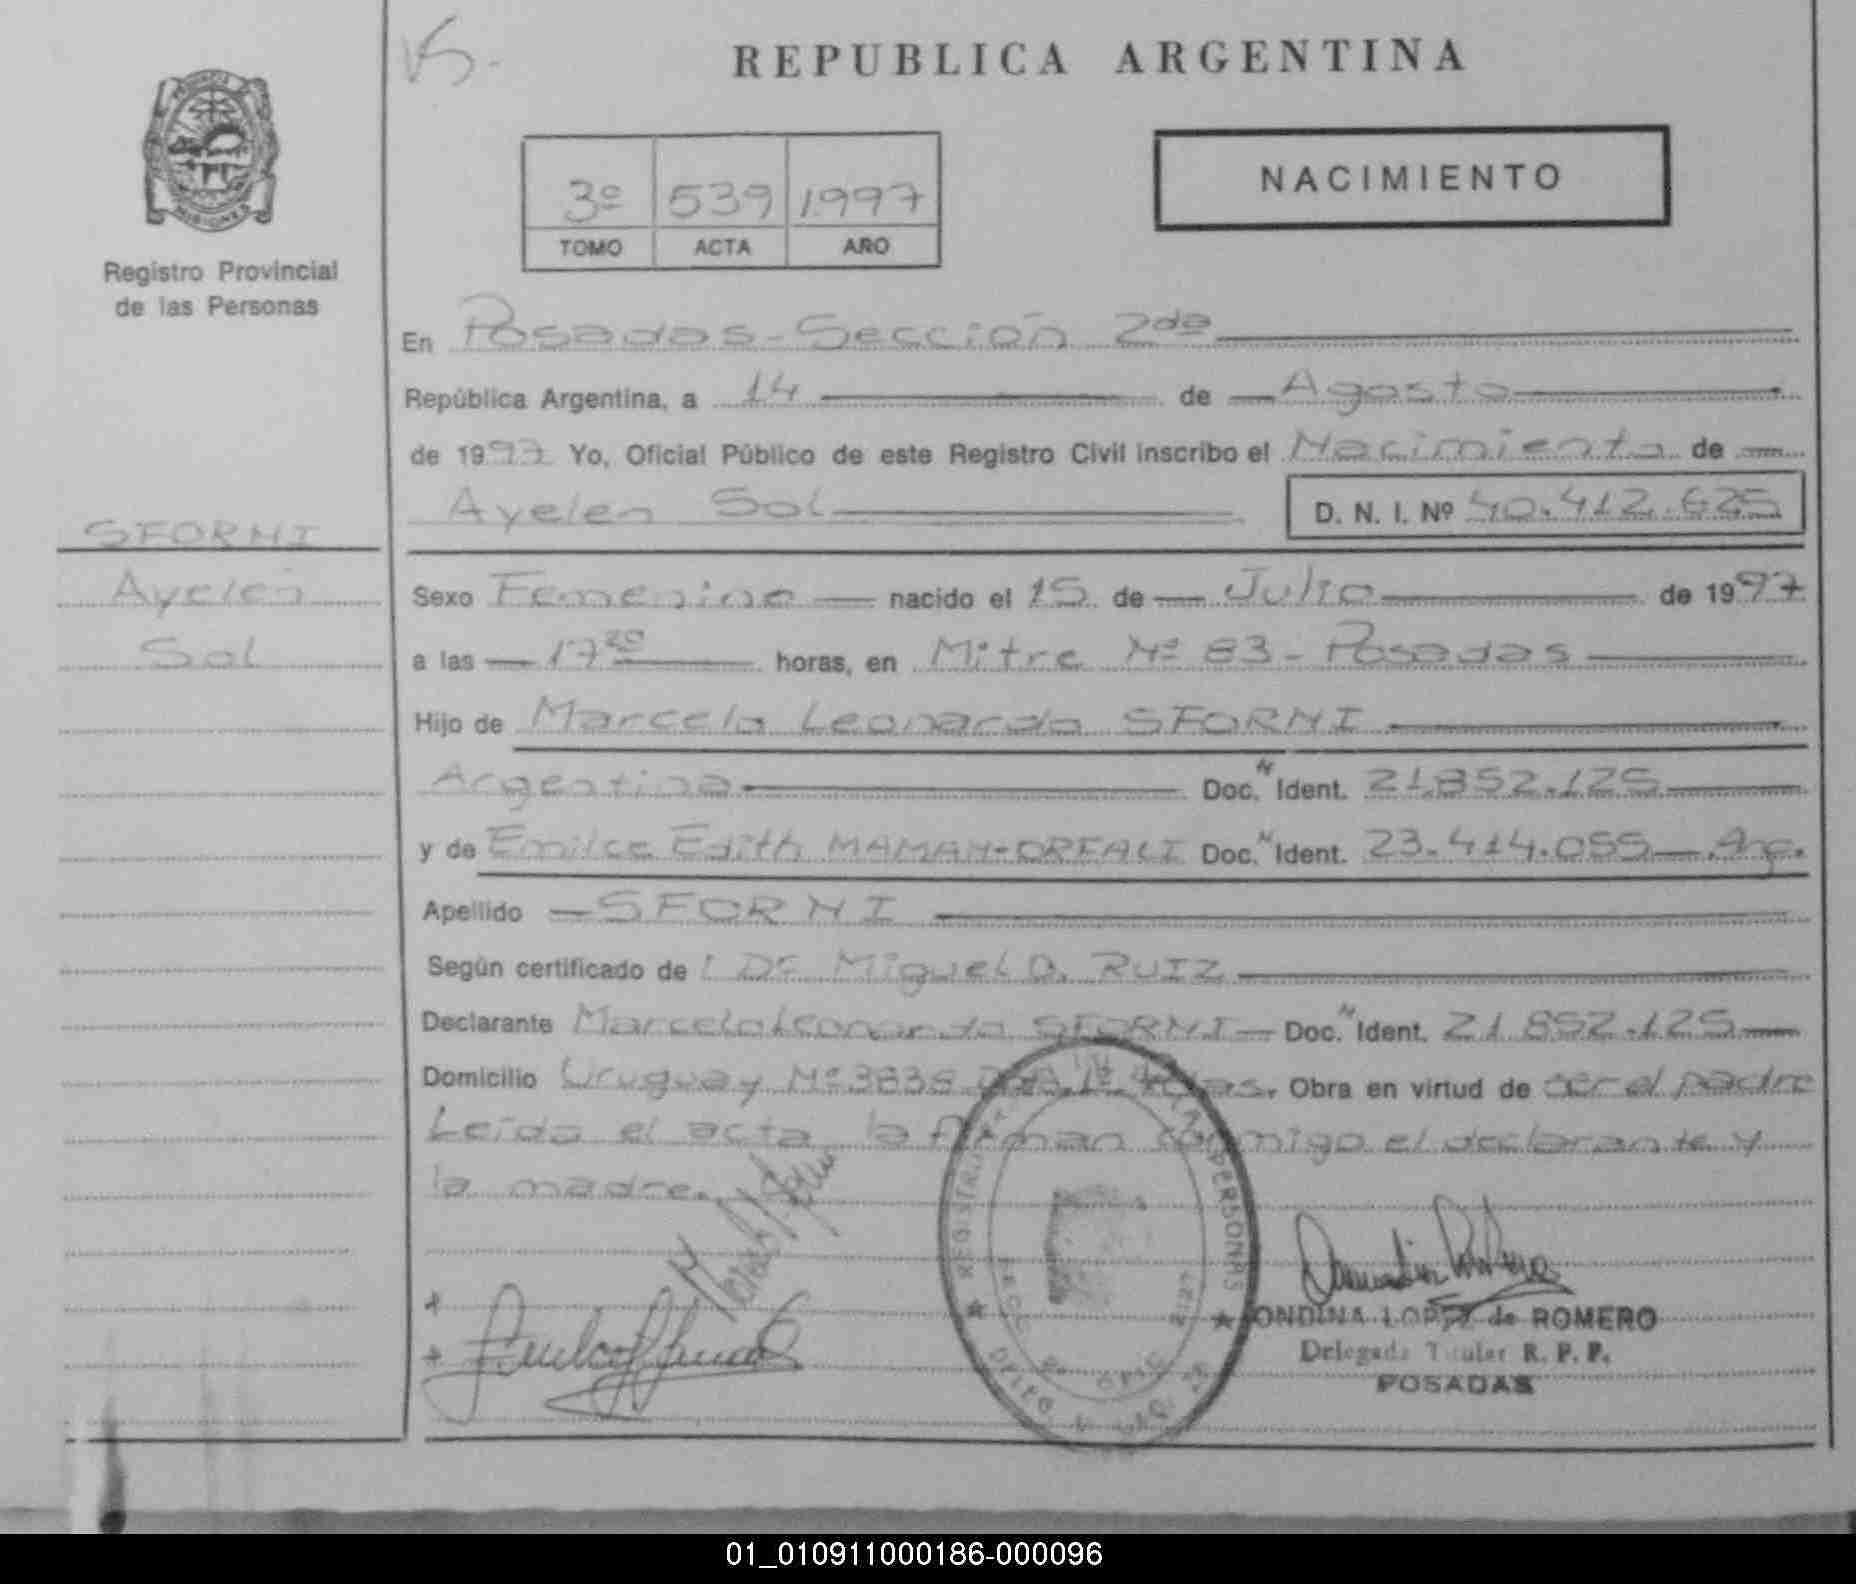 VS.
REPUBLICA ARGENTINA
PROVINCIA
MISIONES
Registro Provincial
de las Personas
3º 539 1997
TOMO ACTA AÑO
NACIMIENTO
En Posadas-Sección 2da
República Argentina, a 14 de Agosto
de 1997 Yo, Oficial Público de este Registro Civil inscribo el Nacimiento de
Ayelen Sol D. N. I. Nº 40.412.625
SFORNI
Ayelen
Sol
Sexo Femenino nacido el 15 de Julio de 1997
a las 17 30 horas, en Mitre Nº 83 - Posadas
Hijo de Marcelo Leonardo SFORNI
Argentina Doc. N Ident. 21.852.125
y de Emilce Edith MAMAN-ORFALI Doc. N Ident. 23.414.055 Arg.
Apellido SFORNI
Según certificado de l Dr Miguel D. RUIZ
Declarante Marcelo Leonardo SFORNI Doc. N Ident. 21.852.125
Domicilio Uruguay Nº 3836 Obra en virtud de ser el padre
Leída el acta la firman conmigo el declarante y
la madre.
REGISTRO PERSONAS
ONDINA LOPEZ de ROMERO
Delegada Titular R. P. P.
POSADAS
01_010911000186-000096